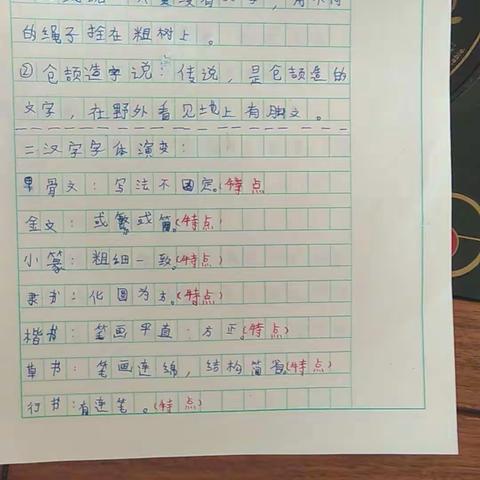 的绳子拴在粗树上。
②仓颉造字说：传说，是仓颉造的
文字，在野外看见地上有脚文。
二汉字字体演变：
甲骨文：写法不固定。(特点
金文：或繁或简。(特点)
小篆：粗细一致。(特点)
隶书：化圆为方。(特点)
楷书：笔画平直：方正。(特点)
草书：笔画连绵，结构简省。(特点)
行书：有连笔。(特点)